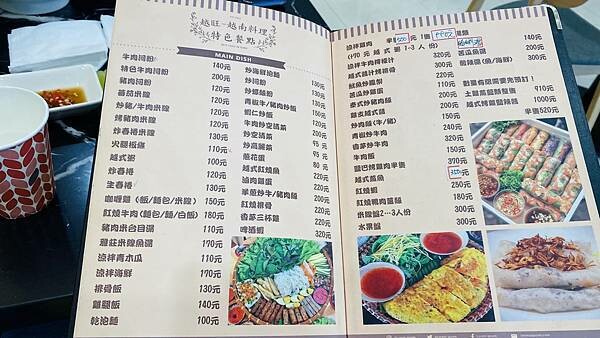 越旺-越南料理
特色餐點
MAIN DISH
牛肉河粉 140元
特色牛肉河粉 200元
豬肉河粉 120元
蕃茄米線 120元
炒豬/牛肉米線 120元
烤豬肉米線 130元
炒春捲米線 130元
火腿板條 110元
越式粥 100元
炸春捲 120元
生春捲 130元
咖哩雞(飯/麵包/米線) 150元
紅燒牛肉(麵包/麵/白飯) 180元
豬肉米台目湯 110元
雅莊米線魚湯 170元
涼拌青木瓜 110元
涼拌海鮮 170元
排骨飯 130元
雞腿飯 140元
乾泡麵 100元
炒海鮮泡麵
炒河粉 130元
炒鄉絲粉 130元
青椒牛/豬肉炒飯 130元
蝦仁炒飯 100元
牛肉炒空心菜
炒空心菜 200元
炒高麗菜 95元
蔥花蛋 95元
越式紅燒魚 80元
滷肉雞蛋 220元
羊蔥炒牛/豬肉 200元
紅燒排骨 200元
香茅三杯雞 220元
啤酒蝦 320元
涼拌雞肉 半隻500元
(+90元 越式粥1-3人份)
140元
200元
300元
苦瓜魚湯
酸辣鍋(魚/海鮮)
涼拌牛肉檸檬汁 300元
越式醬汁烤排骨 300元
魷魚炒鳳梨 220元
苦瓜炒雞蛋 200元
泰式炒豬肉
300元
炒肉類(牛/豬) 240元
青椒炒牛肉 300元
香茅炒牛肉 300元
牛肉飯 150元
鹽巴烤雞肉半隻 370元
越式鳳魚 350元
紅燒蝦 250元
紅燒鴨肉 180元
米線盤2~3人份 300元
水果盤 300元
數量有限需要先預訂!
910元
1000元
半隻520元